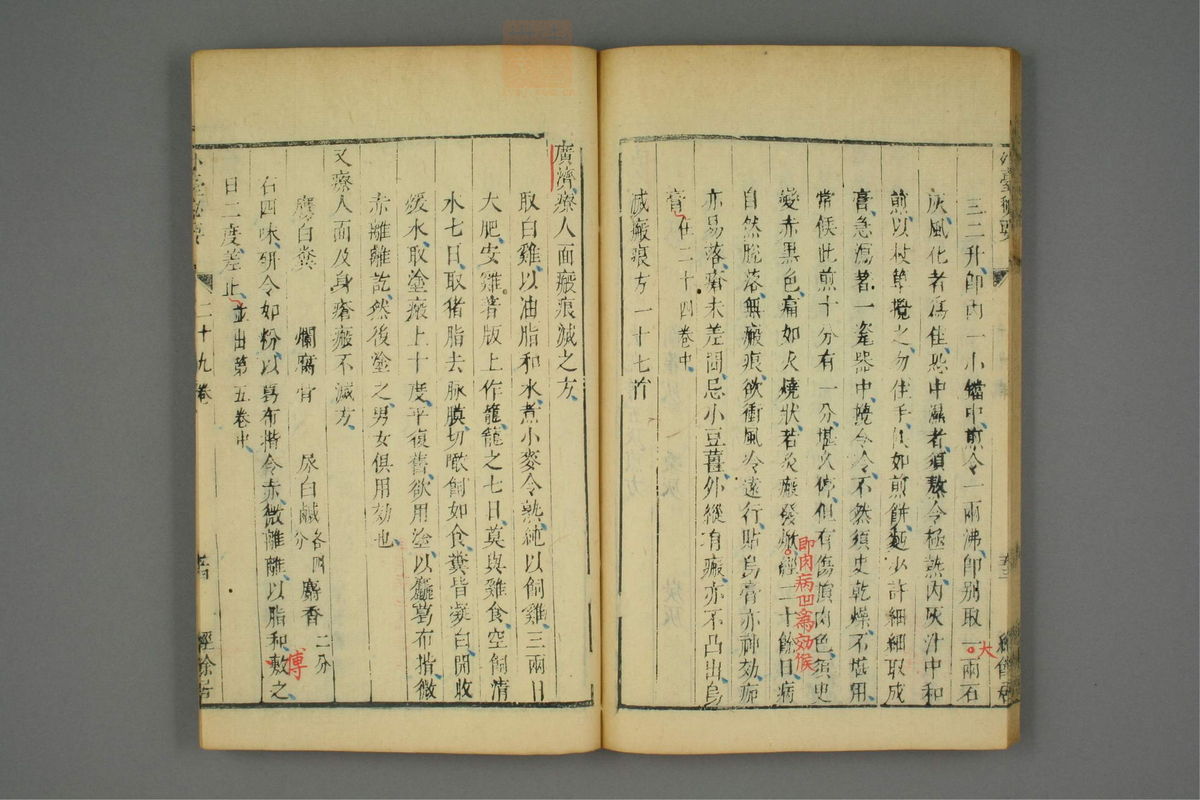 外臺秘要
三二升卽內一小鐺中煎令一兩沸卽別取一兩石
大
灰風化者爲佳 中濕者須熬令極熱內灰汁中和
煎以杖 攪之勿住手候如煎餅麵少許細細取成
膏急瀉著一瓷器中攪令冷不然須臾乾燥不堪用
常候此煎十分有一分堪久停但有傷損肉色須臾
變赤黑色痛如火燒狀若灸瘢發 經二十餘日病
卽肉病凹爲効候
自然脫落無瘢痕欲衝風冷遠行貼烏膏亦神効痂
亦易落瘡未差間忌小豆薑外縱有瘢亦不凸出烏
膏在二十四卷中
滅瘢痕方一十七首
廣濟療人面瘢痕滅之方
取白雞以油脂和水煮小麥令熟純以飼雞三兩日
大肥安雞著版上作籠籠之七日莫與雞食空飼清
水七日取猪脂去脉膜切噉飼如食糞皆凝白開收
煖水取塗瘢上十度平復舊欲用塗以麤葛布揩微
赤離離訖然後塗之男女俱用効也
又療人面及身瘡瘢不滅方
鷹白糞 爛腐骨 尿白鹹各四分 麝香二分
右四味研令如粉以葛布揩令赤微離離以脂和敷之
傅
日二度差止並出第五卷中
外臺秘要 二十九卷 經餘居